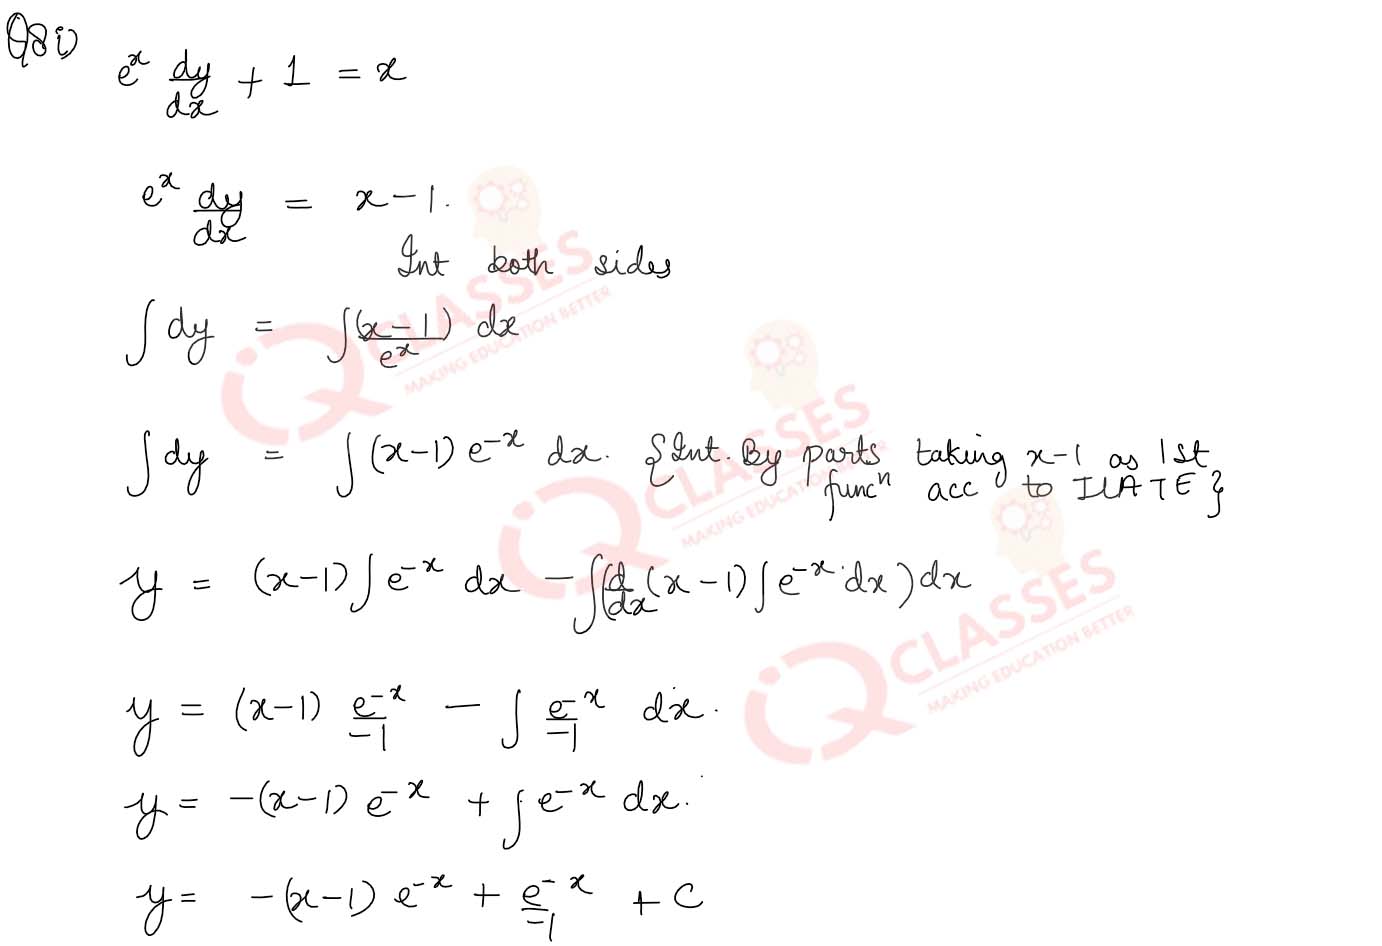 Q8 i)
e^x dy/dx + 1 = x
e^x dy/dx = x-1.
Int both sides
∫dy = ∫(x-1)/e^x dx
∫dy = ∫(x-1) e^-x dx. {Int. By parts taking x-1 as 1st
func^n acc to ILATE}
y = (x-1)∫e^-x dx - ∫(d/dx(x-1)∫e^-x.dx)dx
y = (x-1) e^-x/-1 - ∫ e^-x/-1 dx.
y = -(x-1) e^-x + ∫e^-x dx.
y = -(x-1) e^-x + e^-x/-1 + C
iQ CLASSES
MAKING EDUCATION BETTER
iQ CLASSES
MAKING EDUCATION BETTER
iQ CLASSES
MAKING EDUCATION BETTER